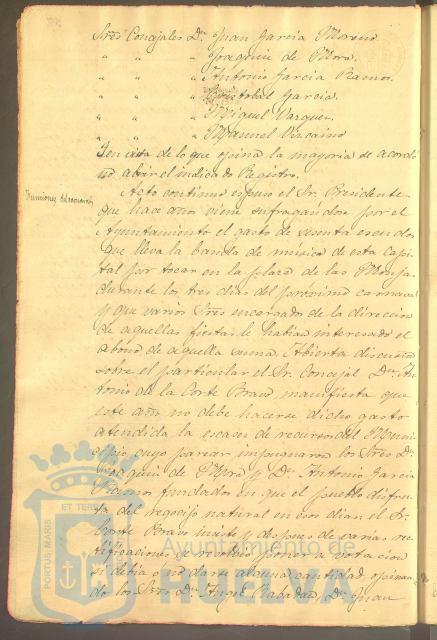 Sres Concejales Dn Juan Garcia Moreno
" " " Joaquin de Mora
" " " Antonio Garcia Ramos.
" " " Cristobal Garcia.
" " " Miguel Vazquez
" " " Manuel Vizcaino
Y en vista de lo que opina la mayoria se acordó
no abrir el indicado Registro.
Acto continuo espuso el Sr. Presidente
que hace años viene sufragandose por el
Ayuntamiento el gasto de sesenta escudos
que lleva la banda de música de esta capi-
tal por tocar en la plaza de las Monjas
durante los tres dias del próximo carnaval
y que varios Sres encargados de la direccion
de aquellas fiestas le habian interesado el
abono de aquella suma. Abierta discusion
sobre el particular el Sr. Concejal Dn An-
tonio de la Corte Bravo, manifiesta que
este año no debe hacerse dicho gasto
atendida la escasez de recursos del Muni-
cipio, cuyo parecer impugnaron los Sres Dn
Joaquin de Mora y Dn Antonio Garcia
Ramos fundados en que el pueblo disfru-
ta del regocijo natural en esos dias: el Sr.
Corte Bravo insiste y despues de varias rec-
tificaciones se resolvió poner a votacion
si debia o no darse alguna cantidad, opinan-
do los Sres Dn Angel Rabadan, Dn Juan
PORTUS MARIS ET TERRAE
Ayuntamiento de
HUELVA